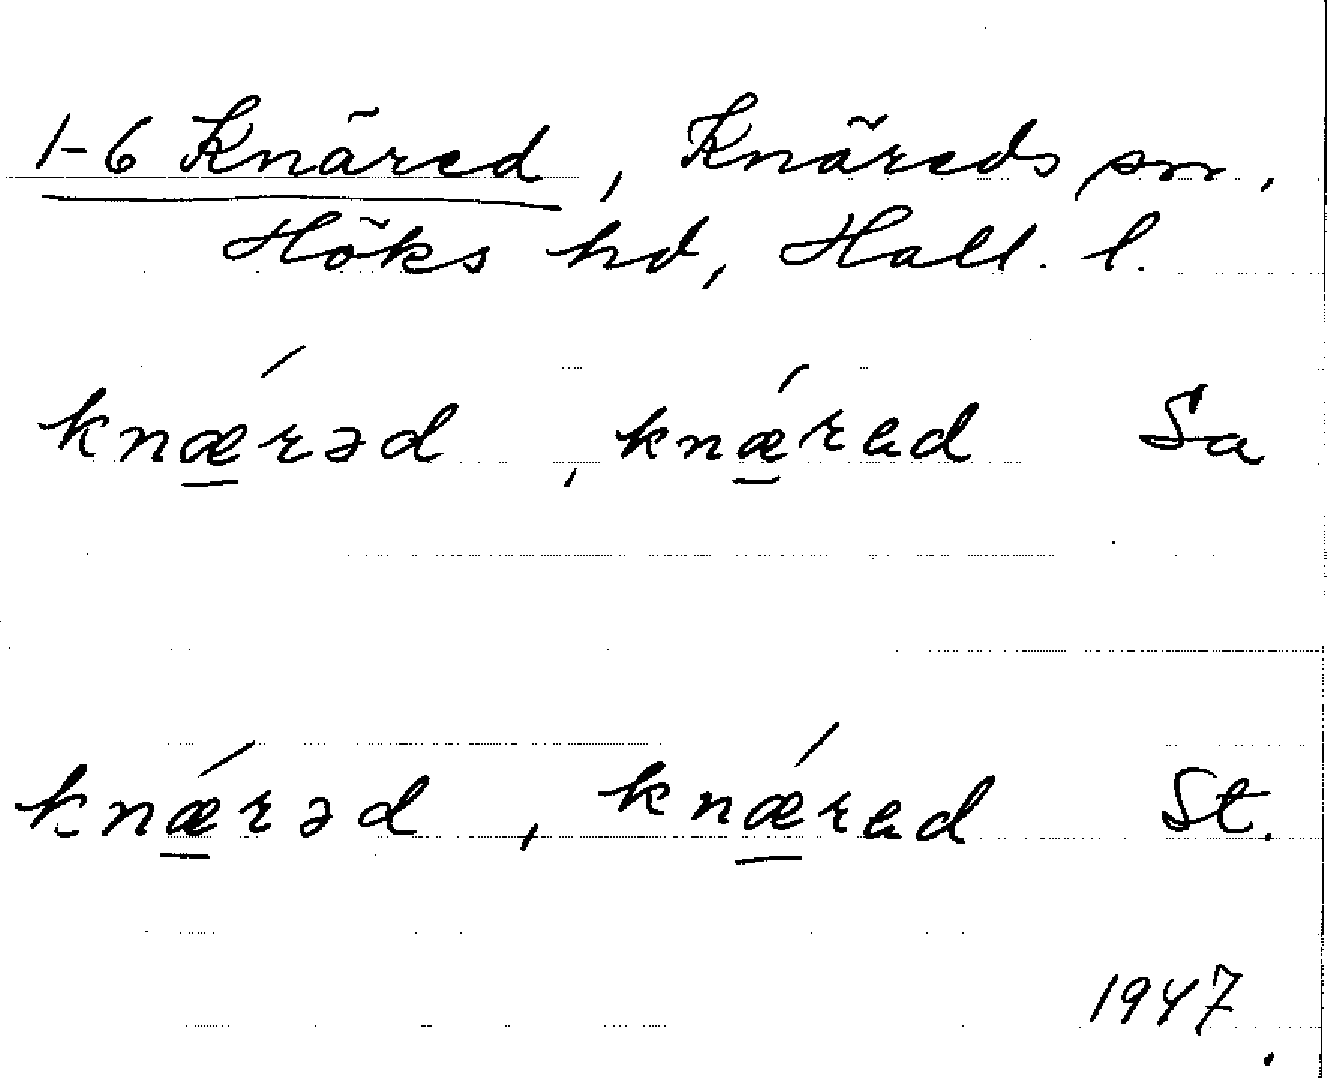 1-6 Knäred, Knäreds sn,
Höks hd, Hall. l.
knǽrəd, knǽred Sa
knǽrəd, knǽred St.
1947.